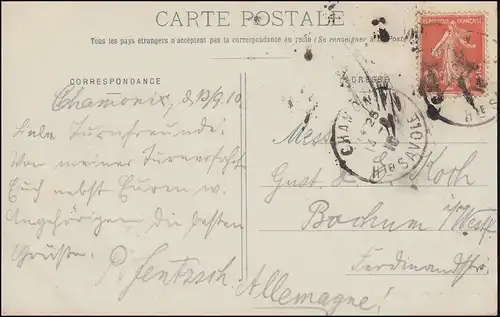 CARTE POSTALE
Tous les pays étrangers n'acceptent pas la correspondance au recto (Se renseigner à la Poste)
CORRESPONDANCE
ADRESSE
RÉPUBLIQUE FRANÇAISE
CHAMONIX
Hte SAVOIE
Chamonix, d. 13/9.10
Liebe Turnfreunde!
Von meiner Turnerfahrt
Euch nebst Euren w.
Angehörigen die besten
Grüße.
P. Jentzsch
Mess.
Gust. Koth
Bochum i/Westf.
Ferdinandstr.
Allemagne!